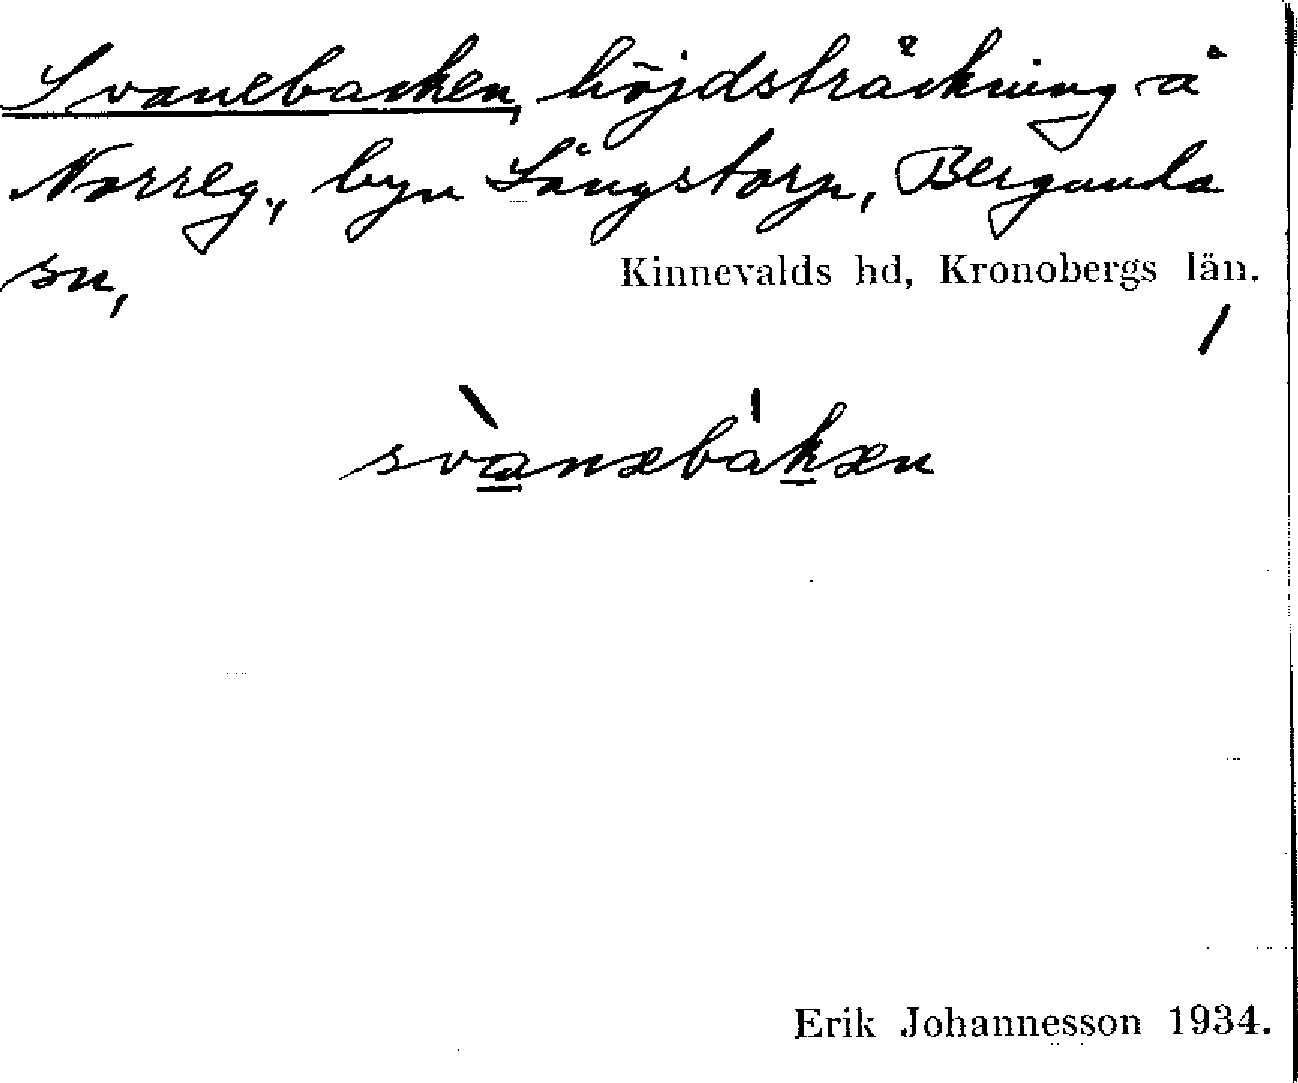 Svanebacken, höjdsträckning å
Norreg., byn Långstorp, Bergunda
sn,
Kinnevalds hd, Kronobergs län.
svànæbákæn
Erik Johannesson 1934.